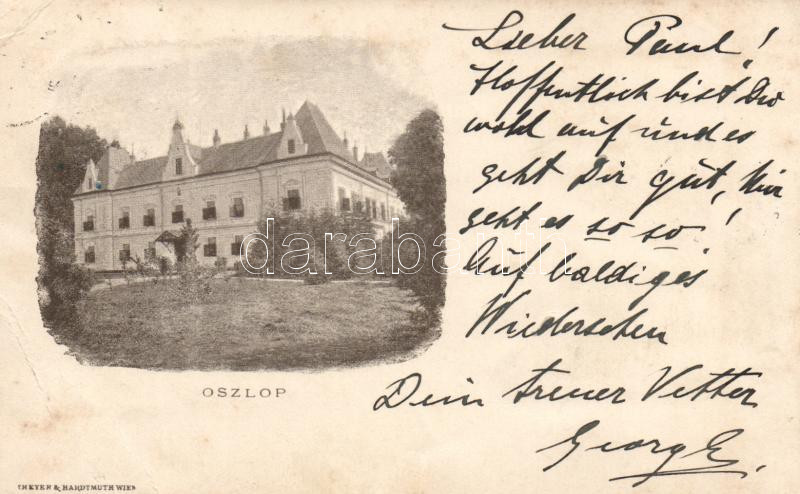 Lieber Paul!
Hoffentlich bist Du
wohl auf und es
geht Dir gut, Mir
geht es so so!
Auf baldiges
Wiedersehen
Dein treuer Vetter
Georg E.
darabanth.com
OSZLOP
THEYER & HARDTMUTH WIEN